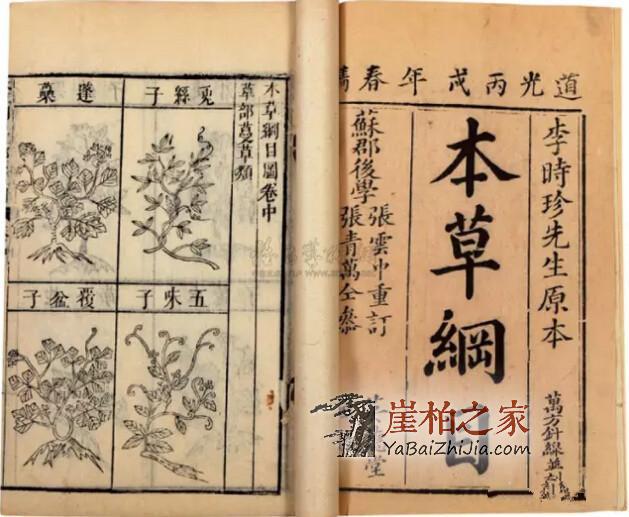 道光丙戌年春
李時珍先生原本
萬方針線並
本草綱目
蘇郡後學
張雲中重訂
張青萬仝參
堂
本草綱目圖卷中
草部蔓草類
兎絲子
蓬蘽
五味子
覆盆子
崖柏之家
YaBaiZhiJia.com